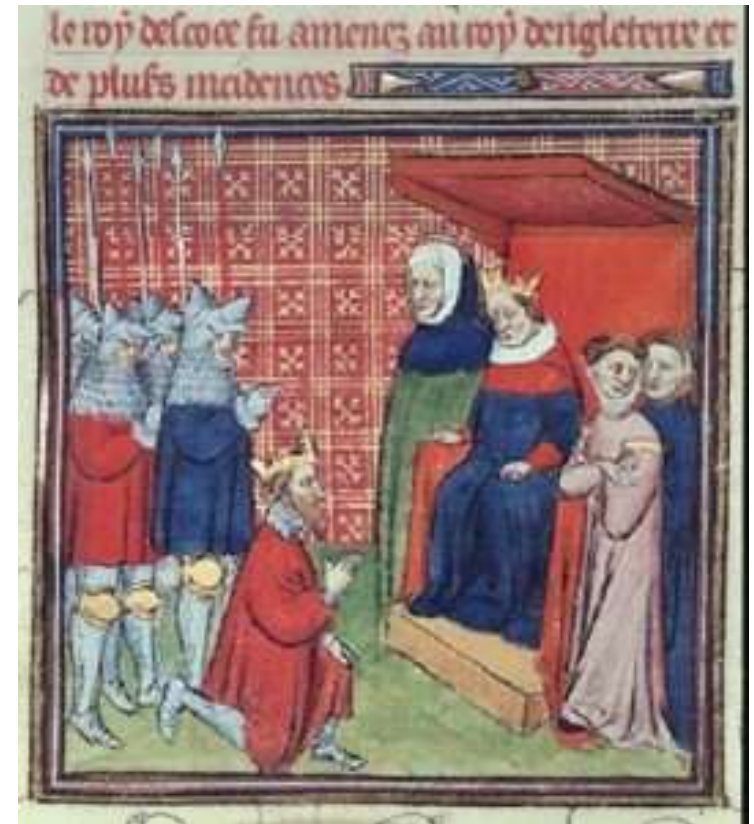 le roy descoce fu amenez au roy dengleterre et
de plus̃s incidences